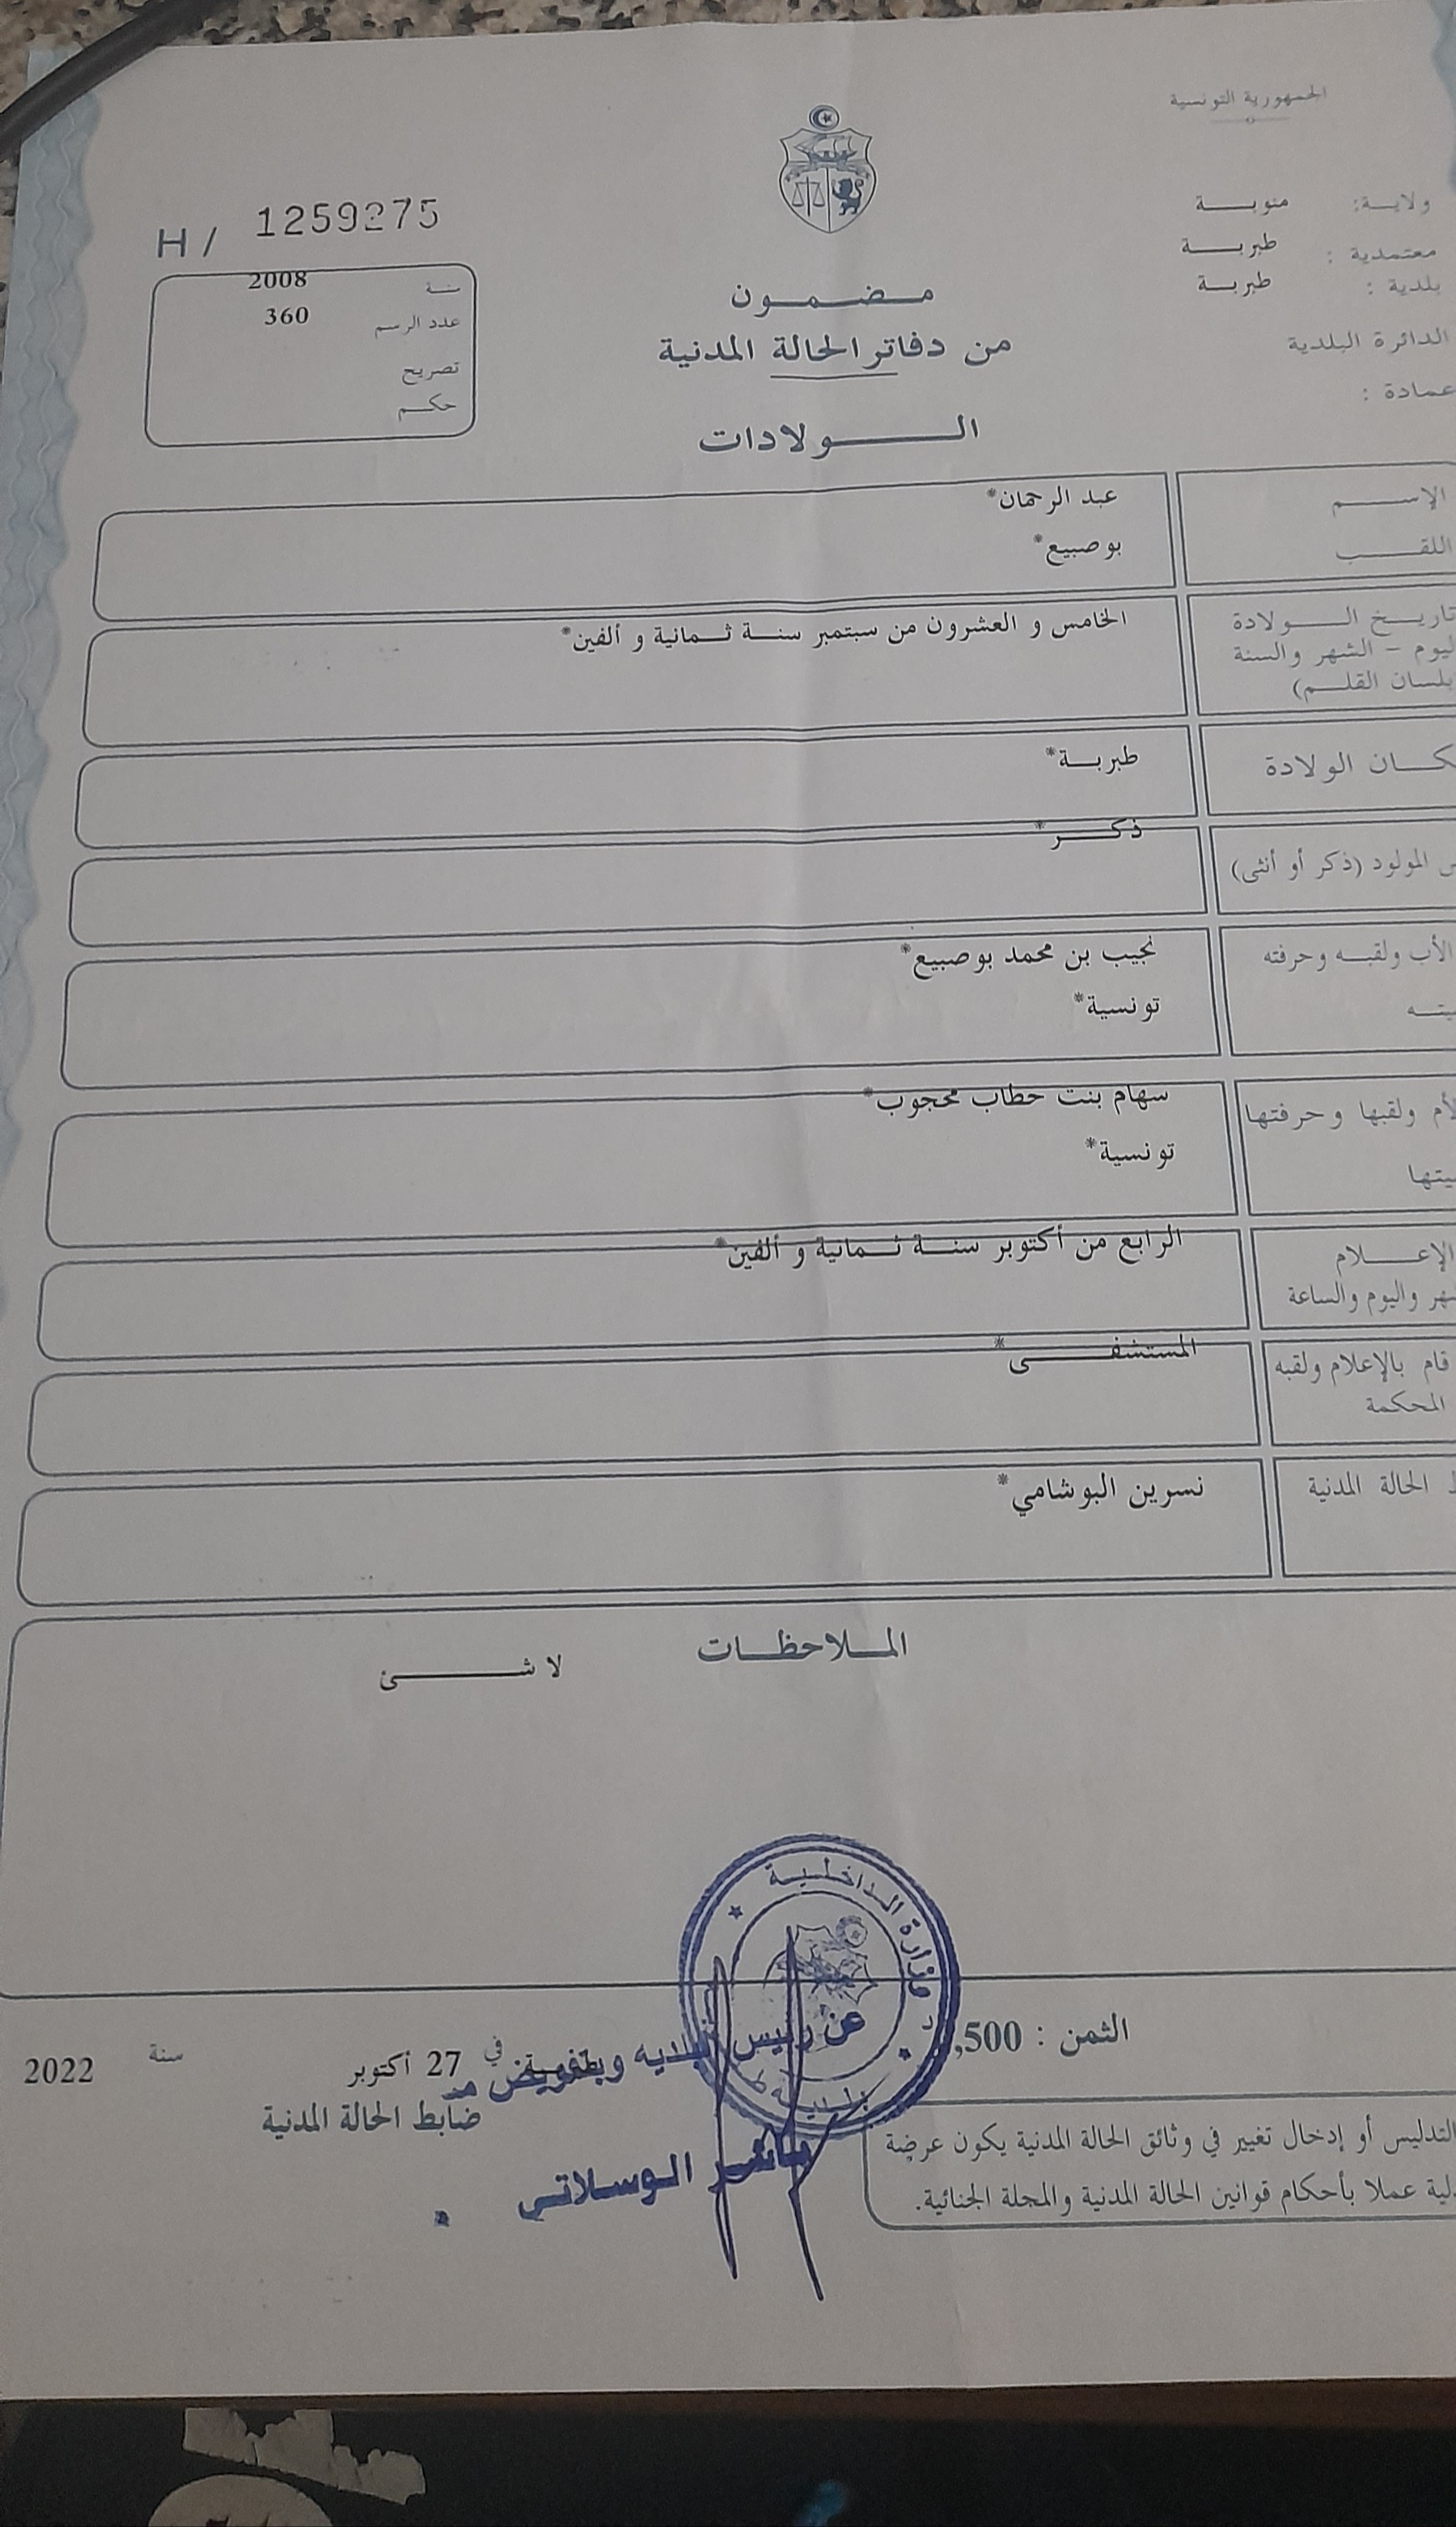 الجمهورية التونسية
ولاية: منوبة
معتمدية : طبربة
بلدية : طبربة
الدائرة البلدية
عمادة :
H / 1259275
سنة 2008
عدد الرسم 360
تصريح
حكم
مضمون
من دفاتر الحالة المدنية
الولادات
الإسم عبد الرحمان*
اللقب بوصبيع*
تاريخ الولادة الخامس و العشرون من سبتمبر سنة ثمانية و ألفين*
اليوم - الشهر والسنة
بلسان القلم)
كان الولادة طبربة*
المولود (ذكر أو أنثى) ذكر*
الأب ولقبه وحرفته نجيب بن محمد بوصبيع*
تونسية*
الأم ولقبها وحرفتها سهام بنت حطاب محجوب*
تونسية*
الإعلام الرابع من أكتوبر سنة ثمانية و ألفين*
واليوم والساعة
قام بالإعلام ولقبه المستشفى*
المحكمة
الحالة المدنية نسرين البوشامي*
الملاحظات
لا شئ
وزارة الداخلية
الثمن : 500,
في 27 أكتوبر سنة 2022
عن رئيس البلدية وبتفويض منه
ضابط الحالة المدنية
الوسلاتي
التدليس أو إدخال تغيير في وثائق الحالة المدنية يكون عرضة
عملا بأحكام قوانين الحالة المدنية والمجلة الجنائية.